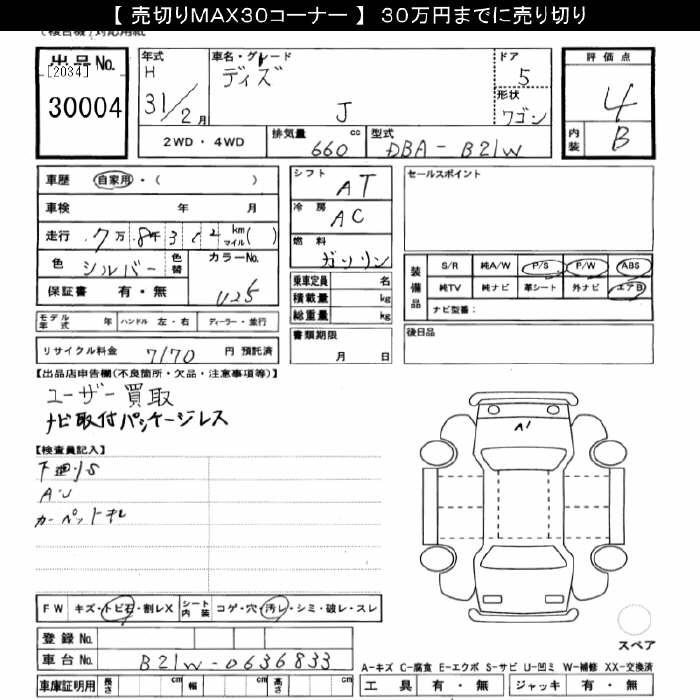 【 売切りMAX30コーナー 】 30万円までに売り切り
出品No.
[2034]
30004
年式
H
31/2月
車名・グレード
デイズ
J
ドア
5
形状
ワゴン
評価点
4
内装
B
2WD・4WD
排気量 cc
660
型式
DBA-B21W
車歴 自家用・( )
車検 年 月
走行 7万8千312 km マイル( )
色 シルバー 色替
カラーNo.
U25
保証書 有・無
モデル年式 年 ハンドル 左・右 ディーラー・並行
リサイクル料金 7170 円 預託済
シフト
AT
冷房
AC
燃料
ガソリン
乗車定員 名
積載量 kg
総重量 kg
書類期限
月 日
セールスポイント
装備品
S/R 純A/W P/S P/W ABS
純TV 純ナビ 革シート 外ナビ エアB
ナビ型番:
後日品
【出品店申告欄(不良箇所・欠品・注意事項等)】
ユーザー買取
ナビ取付パッケージレス
【検査員記入】
下廻りS
A・U
カーペット汚レ
A1
FW キズ・トビ石・割レX シート内装 コゲ・穴・汚レ・シミ・破レ・スレ
登録No.
車台No. B21W-0636833
車庫証明用 長さ cm 幅 cm 高さ cm
スペア
A-キズ C-腐食 E-エクボ S-サビ U-凹ミ W-補修 XX-交換済
工具 有・無 ジャッキ 有・無